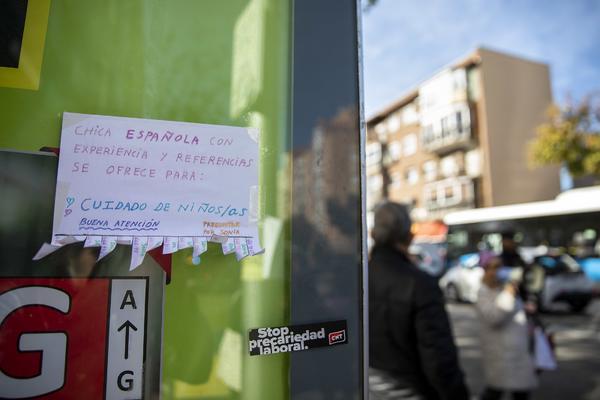 CHICA ESPAÑOLA CON
EXPERIENCIA Y REFERENCIAS
SE OFRECE PARA:
CUIDADO DE NIÑOS/AS
BUENA ATENCIÓN
PREGUNTAR
POR SONIA
G
A
G
Stop
precariedad
laboral.
CNT